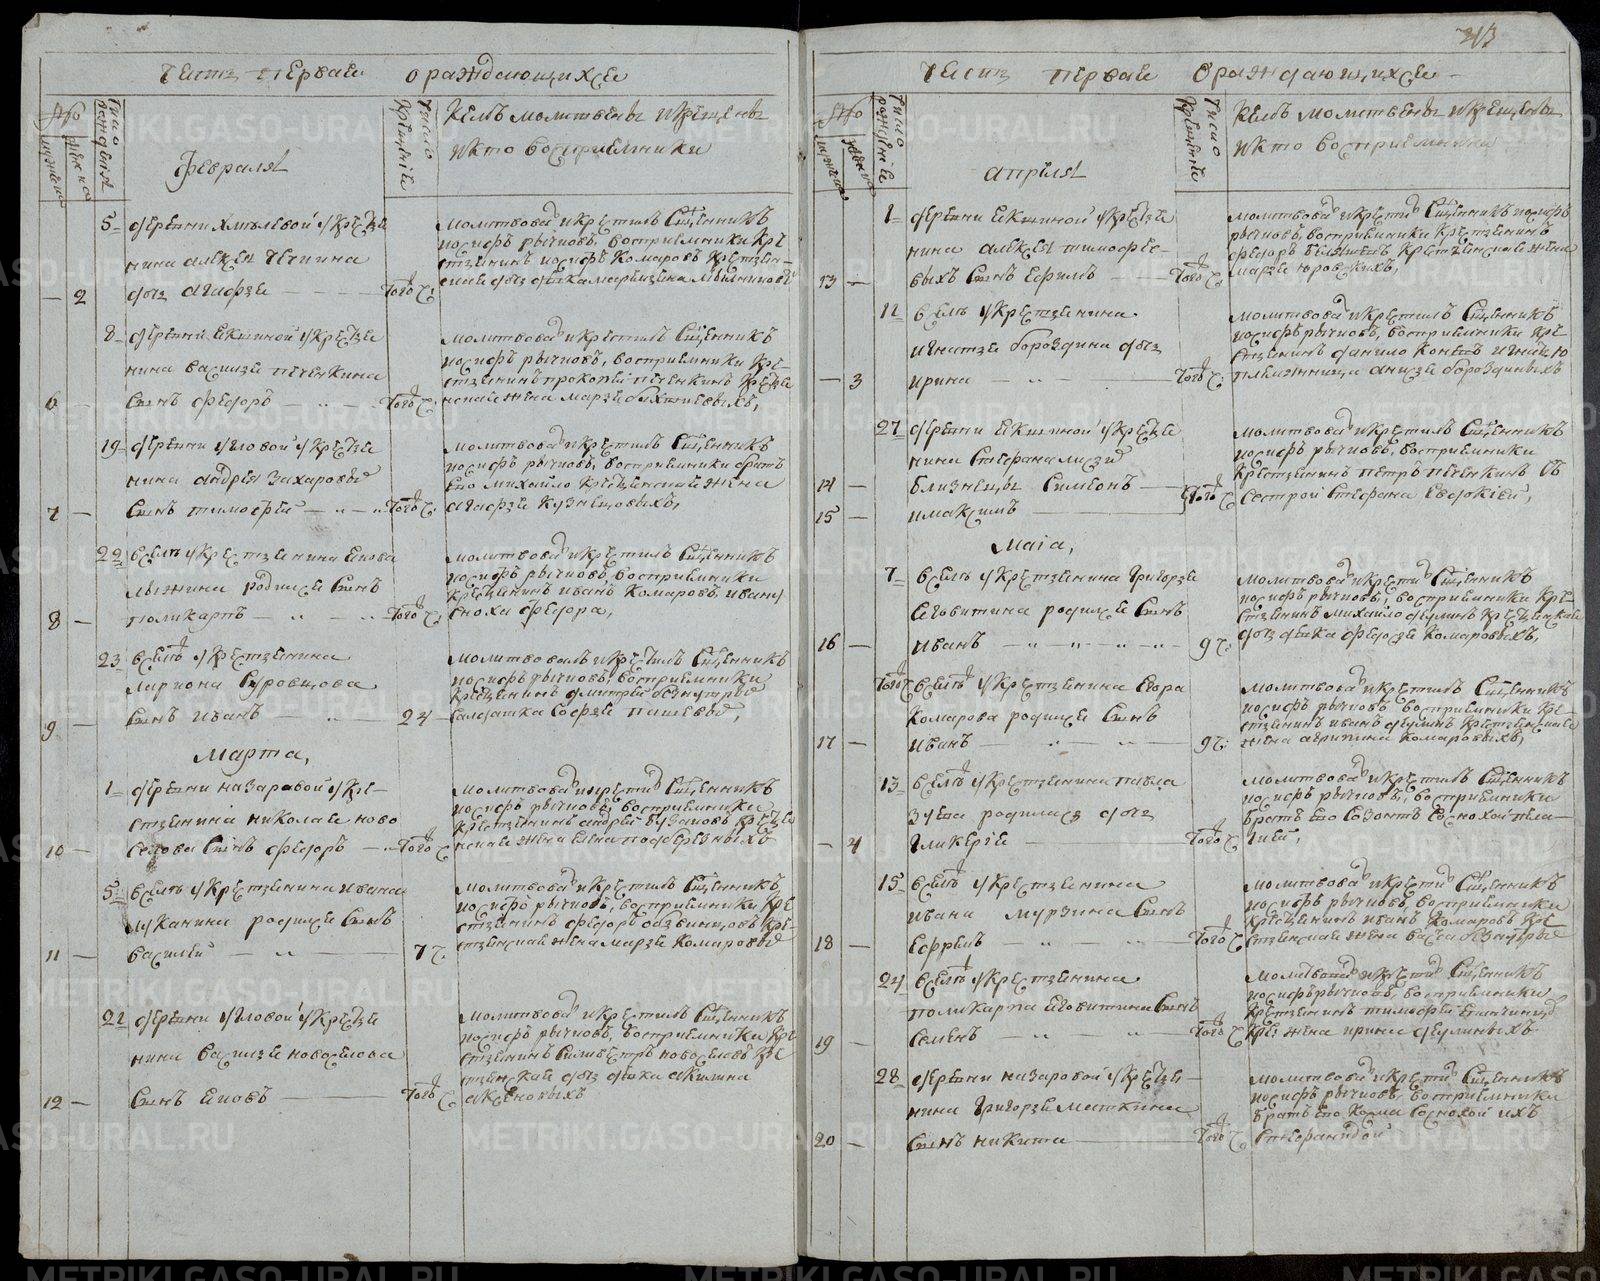 Часть первая о раждающихся
Число рождения
Число крещения
Кемъ молитвены и крещены
и кто восприемники
Февраля
5 деревни Хмелевой у крестья
нина Алексея
2 дочь Агафья того ч.
молитвовал и крестил священникъ
Иосифъ Рычковъ, восприемники кре
стьянинъ Иосифъ Комаровъ крестьян
ская дочь девка
8 деревни Екшиной у крестья
нина Василья Печенкина
6 сынъ Федоръ того ч.
молитвовал и крестилъ священникъ
Иосифъ Рычковъ, восприемники кре
стьянинъ Прокопей Печенкинъ крестья
нская жена Марья
19 деревни Угловой у крестья
нина Андрея Захаровых
7 сынъ Тимофей того ч.
молитвовал и крестилъ священникъ
Иосифъ Рычковъ, восприемники братъ
ево Михайло крестьянская жена
Агафья Кузнецовыхъ,
22 в селе у крестьянина Якова
родился сынъ
8 Поликарпъ того ч.
молитвовал и крестилъ священникъ
Иосифъ Рычковъ, восприемники
крестьянинъ Иванъ Комаровъ Ивану
сноха Федора,
23 в селе у крестьянина
Лариона Суровцова
9 сынъ Иванъ 24
молитвовалъ и крестилъ священникъ
Иосифъ Рычковъ, восприемники
крестьянинъ Дмитрей
салдатка Софья
Марта,
1 деревни Назаровой у кре
стьянина Николая Ново
10 селова сынъ Федоръ того ч.
молитвовал и крестил священникъ
Иосифъ Рычковъ, восприемники
крестьянинъ Андрей Бузановъ крестья
нская жена Елена
5 в селе у крестьянина Ивана
Луканина родился сынъ
11 Василий 7 ч.
молитвовал и крестилъ священникъ
Иосифъ Рычковъ, восприемники кре
стьянинъ Федоръ кре
стьянская жена Марья Комаровых
21 деревни Угловой у крестья
нина Василья Новоселова
12 сынъ Яковъ того ч.
молитвовал и крестилъ священникъ
Иосифъ Рычковъ, восприемники кре
стьянинъ Силивестръ Новоселовъ кре
стьянская дочь девка Акилина
Аксеновыхъ
213
Часть первая о раждающихся
Число рождения
Число крещения
Кемъ молитвены и крещены
и кто восприемники
Апреля
1 деревни Екшиной у крестья
нина Алексея Тимофее
13 выхъ сынъ Ефимъ того ч.
молитвовал и крестил священникъ Иосифъ
Рычковъ, восприемники крестьянинъ
Федоръ крестьянская жена
Марья Юровскихъ,
12 в селе у крестьянина
Игнатья Бороздина дочь
3 Ирина того ч.
молитвовал и крестилъ священникъ
Иосифъ Рычковъ, восприемники кре
стьянинъ Данило Игнатью
племянница Анисья Бороздиныхъ
27 деревни Екшиной у крестья
нина Стефана
14 близнецы Симеонъ того ч.
15 и Максимъ
молитвовал и крестилъ священникъ
Иосифъ Рычковъ, восприемники
крестьянинъ Петръ Печенкинъ съ
сестрой Стефана Евдокией,
Маія,
7 в селе у крестьянина Григорья
Яговитина родился сынъ
16 Иванъ 9 ч.
молитвовал и крестил священникъ
Иосифъ Рычковъ, восприемники кре
стьянинъ Михайло Дулинъ крестьянская
дочь девка Федосья Комаровыхъ,
того ч. в селе у крестьянина Егора
Комарова родился сынъ
17 Иванъ 9 ч.
молитвовал и крестилъ священникъ
Иосифъ Рычковъ восприемники кре
стьянинъ Иванъ Дулинъ крестьянская
жена Агрипина Комаровыхъ,
13 в селе у крестьянина Павла
Зуева родилась дочь
4 Гликерія того ч.
молитвовал и крестилъ священникъ
Иосифъ Рычковъ, восприемники
братъ ево Созонтъ со снохой Пела
гией,
15 в селе у крестьянина
Ивана Мурзина сынъ
18 Ефремъ того ч.
молитвовал и крестил священникъ
Иосифъ Рычковъ, восприемники
крестьянинъ Иванъ Комаровъ кре
стьянская жена Васса
24 в селе у крестьянина
Поликарпа Яговитина сынъ
19 Семенъ того ч.
молитвовал и крестил священникъ
Иосифъ Рычковъ, восприемники
крестьянинъ Тимофей
жена Ирина Дулиныхъ
28 деревни Назаровой у крестья
нина Григорья Меткина
20 сынъ Никита того ч.
молитвовал и крестил священникъ
Иосифъ Рычковъ, восприемники
братъ ево Козма со снохой ихъ
Стефанидой